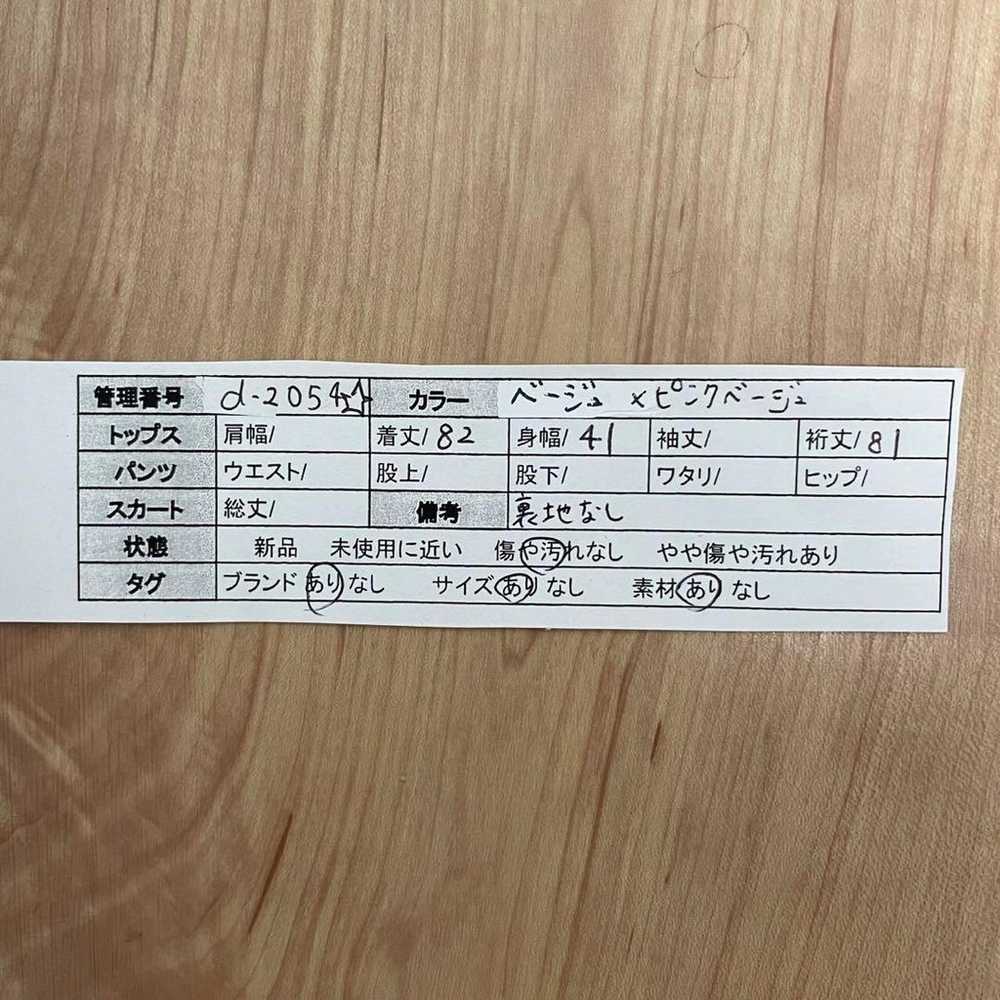 管理番号 d-2054☆ カラー ベージュ×ピンクベージュ
トップス 肩幅/ 着丈/82 身幅/41 袖丈/ 裄丈/81
パンツ ウエスト/ 股上/ 股下/ ワタリ/ ヒップ/
スカート 総丈/ 備考 裏地なし
状態 新品 未使用に近い 傷や汚れなし やや傷や汚れあり
タグ ブランド あり なし サイズ あり なし 素材 あり なし